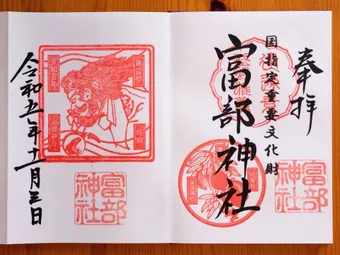 奉拝
国指定重要文化財
富部神社
富部
神社
令和五年十一月三日
富部
神社